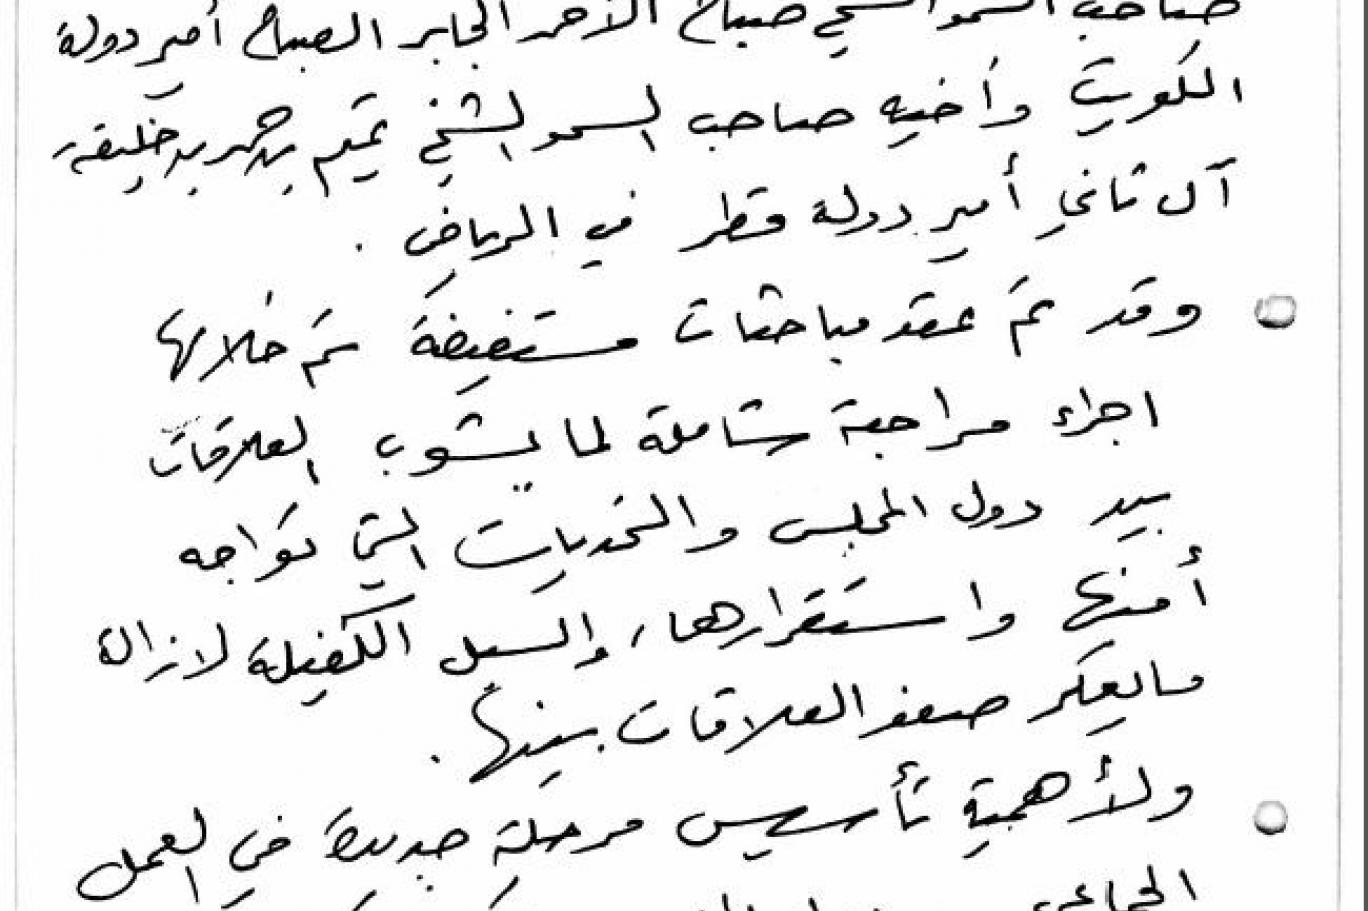 صاحب السمو الشيخ صباح الأحمد الجابر الصباح أمير دولة
الكويت وأخيه صاحب السمو الشيخ تميم بن حمد بن خليفة
آل ثاني أمير دولة قطر في الرياض .
وقد تم عقد مباحثات مستفيضة تم خلالها
اجراء مراجعة شاملة لما يشوب العلاقات
بين دول المجلس والتحديات التي تواجه
أمنها واستقرارها، والسبل الكفيلة لازالة
مايعكر صفو العلاقات بينها .
ولأهمية تأسيس مرحلة جديدة في العمل
الجماعي